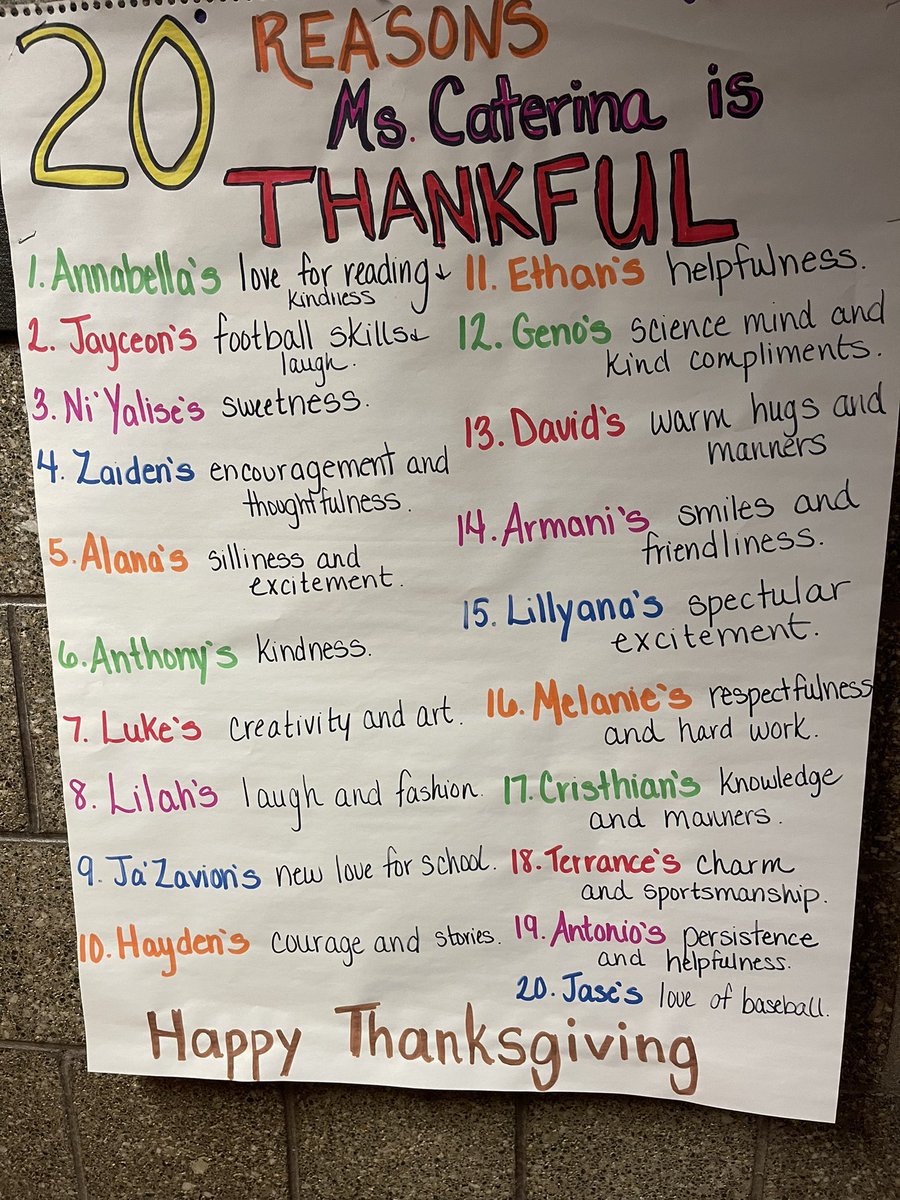 20 REASONS
Ms. Caterina is
THANKFUL
1. Annabella's love for reading &
kindness
2. Jayceon's football skills &
laugh.
3. Ni'Yalise's sweetness.
4. Zaiden's encouragement and
thoughtfulness.
5. Alana's silliness and
excitement.
6. Anthony's kindness.
7. Luke's creativity and art.
8. Lilah's laugh and fashion.
9. Ja'Zavion's new love for school.
10. Hayden's courage and stories.
11. Ethan's helpfulness.
12. Geno's science mind and
kind compliments.
13. David's warm hugs and
manners
14. Armani's smiles and
friendliness.
15. Lillyana's spectular
excitement.
16. Melanie's respectfulness
and hard work.
17. Cristhian's knowledge
and manners.
18. Terrance's charm
and sportsmanship.
19. Antonio's persistence
and helpfulness.
20. Jase's love of baseball.
Happy Thanksgiving